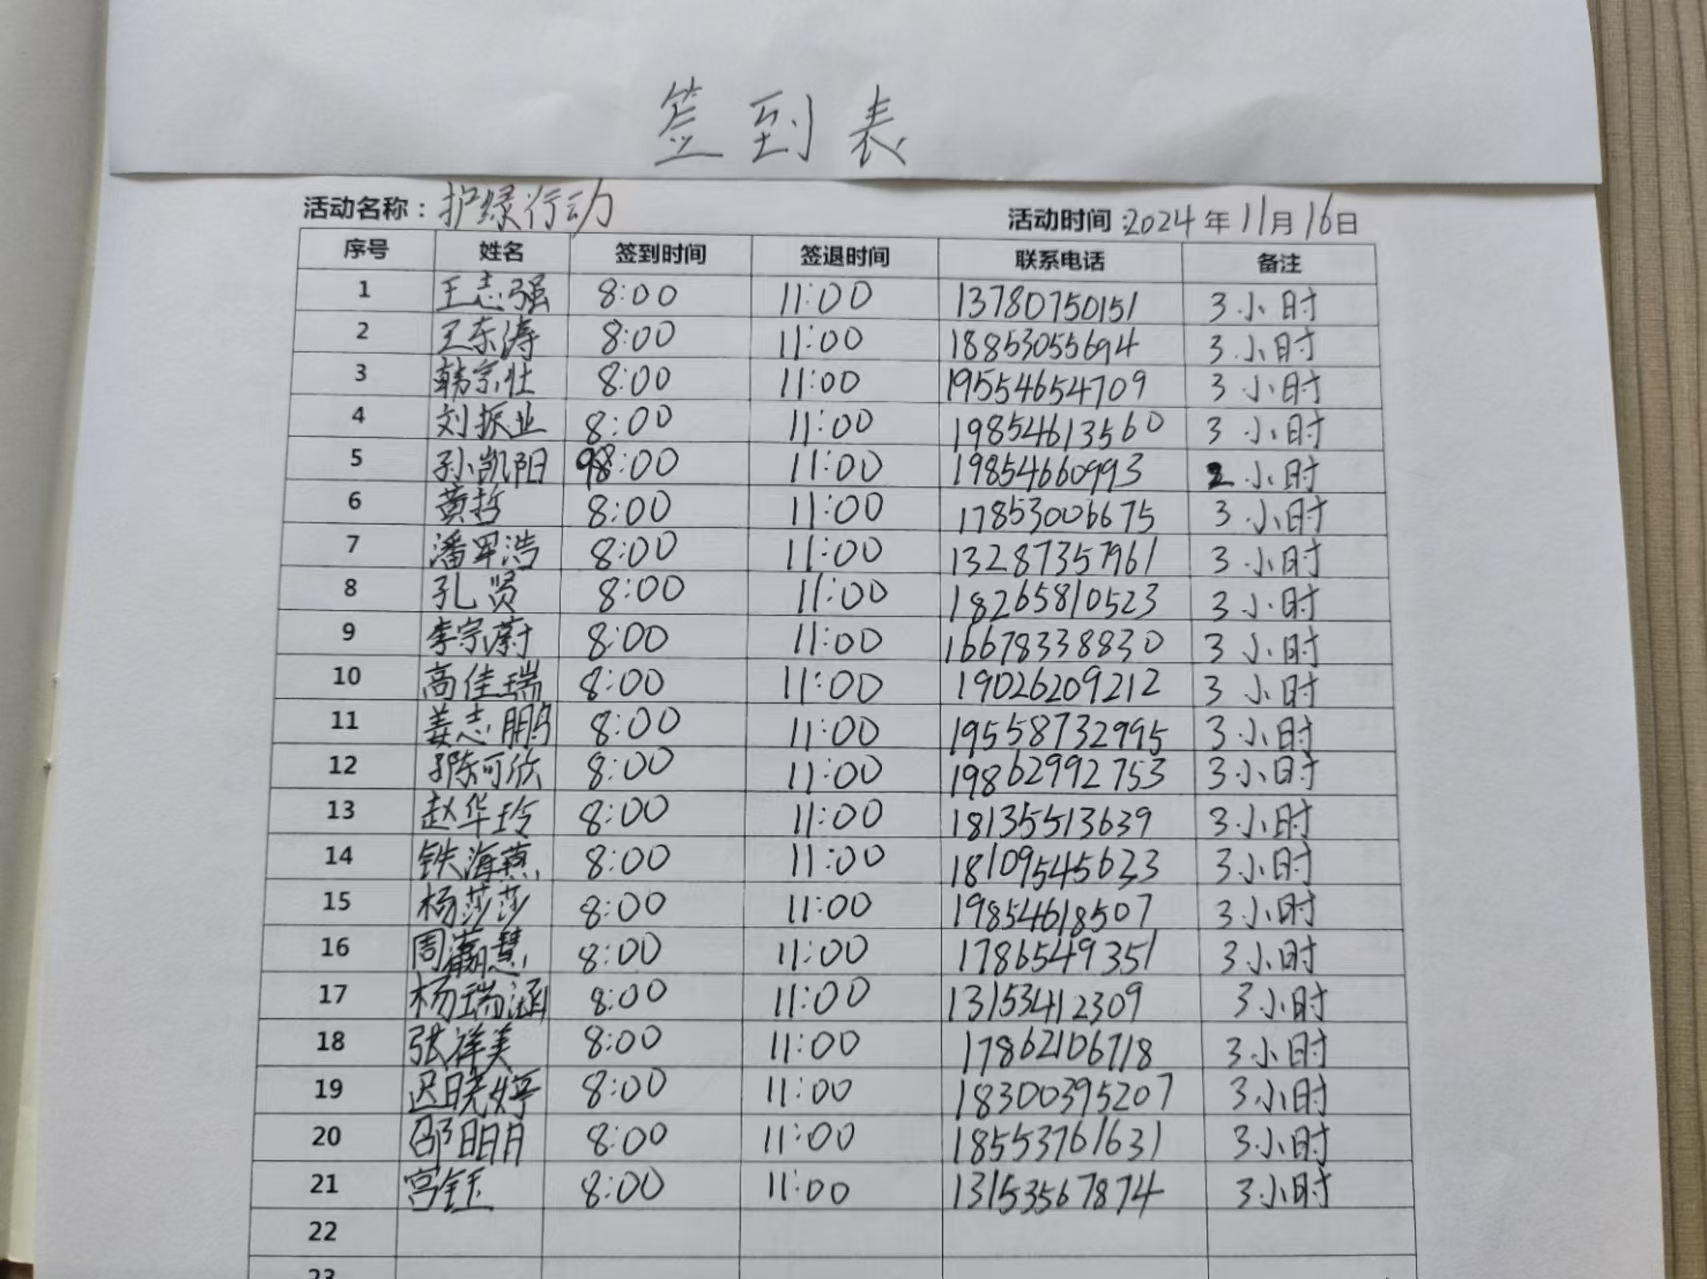 签到表
活动名称：护绿行动 活动时间：2024年11月16日
序号 姓名 签到时间 签退时间 联系电话 备注
1 王志强 8:00 11:00 13780750151 3小时
2 王东涛 8:00 11:00 18853055694 3小时
3 韩宗壮 8:00 11:00 19554654709 3小时
4 刘振业 8:00 11:00 19854613560 3小时
5 孙凯阳 9:00 11:00 19854660993 2小时
6 黄哲 8:00 11:00 17853006675 3小时
7 潘军浩 8:00 11:00 13287357961 3小时
8 孔贤 8:00 11:00 18265810523 3小时
9 李宗蔚 8:00 11:00 16678338830 3小时
10 高佳瑞 8:00 11:00 19026209212 3小时
11 姜志鹏 8:00 11:00 19558732995 3小时
12 陈可欣 8:00 11:00 19862992753 3小时
13 赵华玲 8:00 11:00 18135513639 3小时
14 铁海燕 8:00 11:00 18109545623 3小时
15 杨莎莎 8:00 11:00 19854618507 3小时
16 周灏慧 8:00 11:00 1786549351 3小时
17 杨瑞涵 8:00 11:00 13153412309 3小时
18 张祥美 8:00 11:00 17862106718 3小时
19 迟晓婷 8:00 11:00 18300395207 3小时
20 邵明月 8:00 11:00 18553761631 3小时
21 宫钰 8:00 11:00 13153567874 3小时
22
23